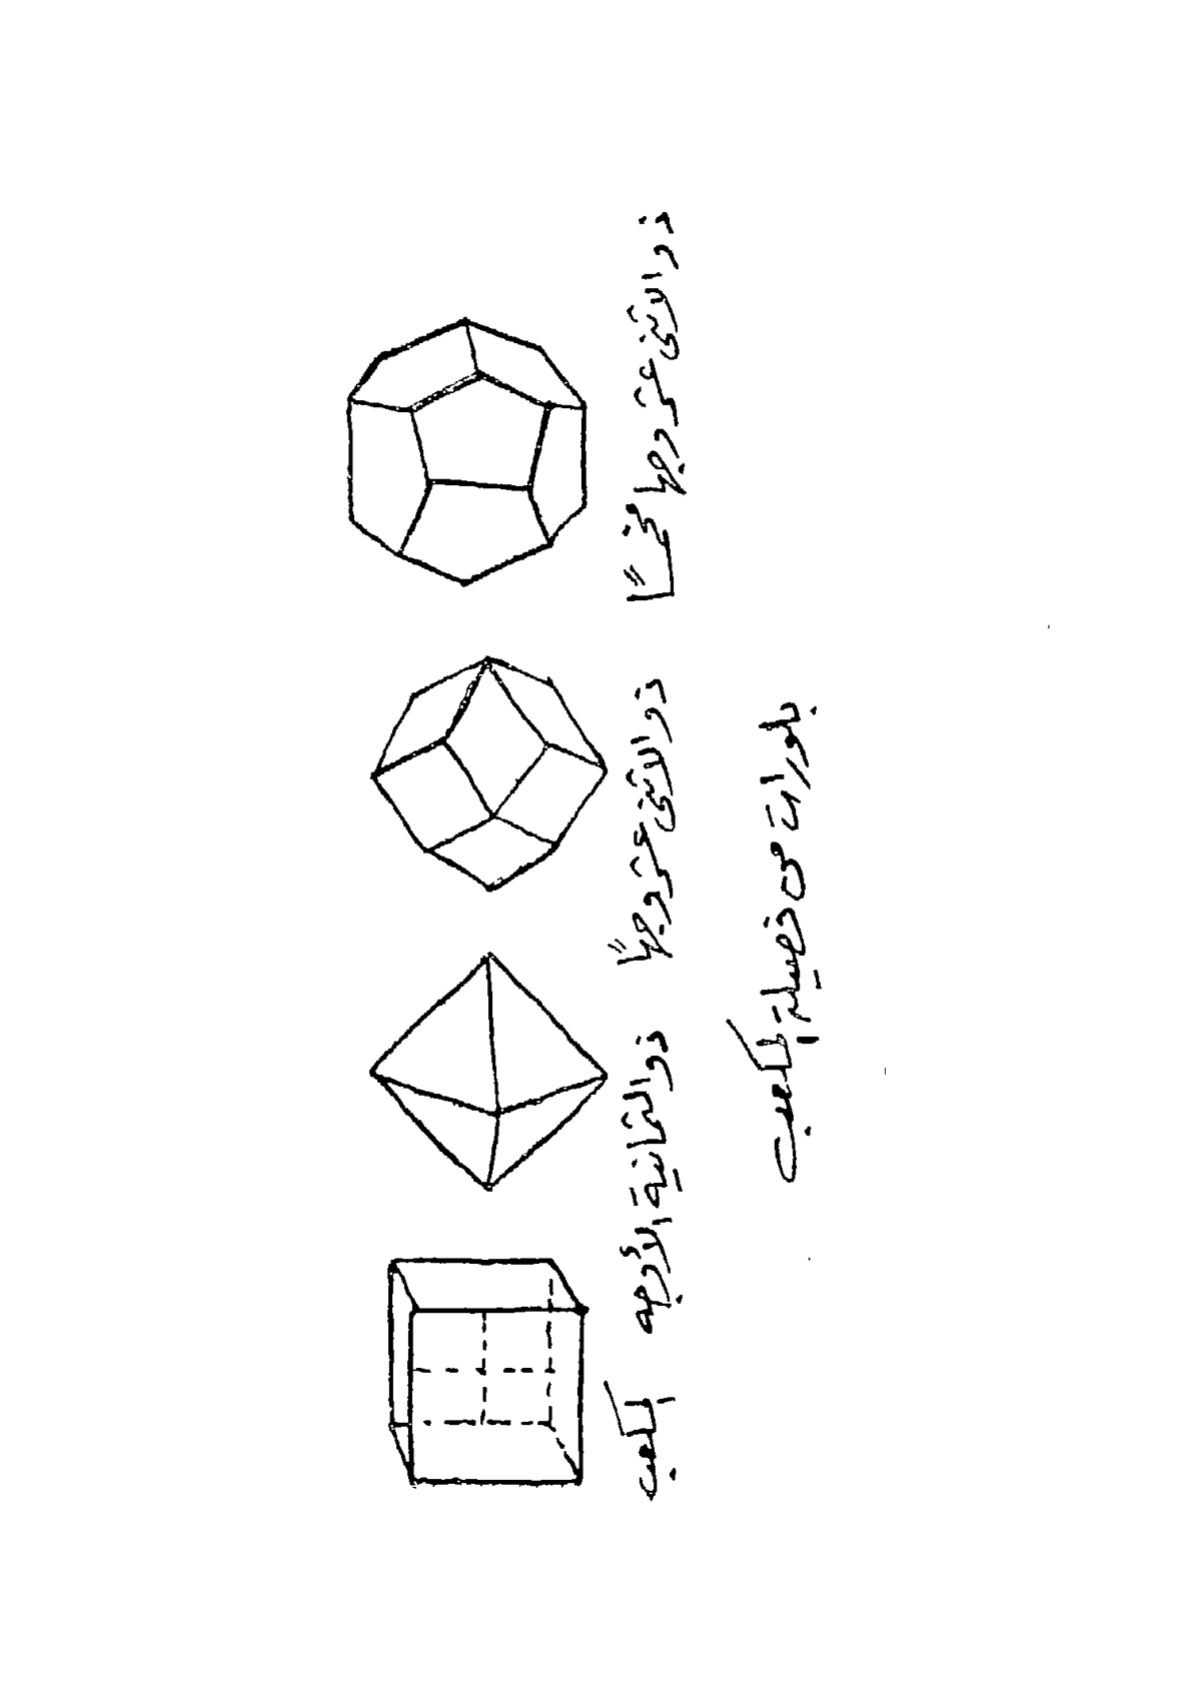 ذو الاثنى عشر وجها مخمسًا
ذو الاثنى عشر وجهًا
ذو الثمانية الأوجه
المكعب
بلورات من فصيلة المكعب